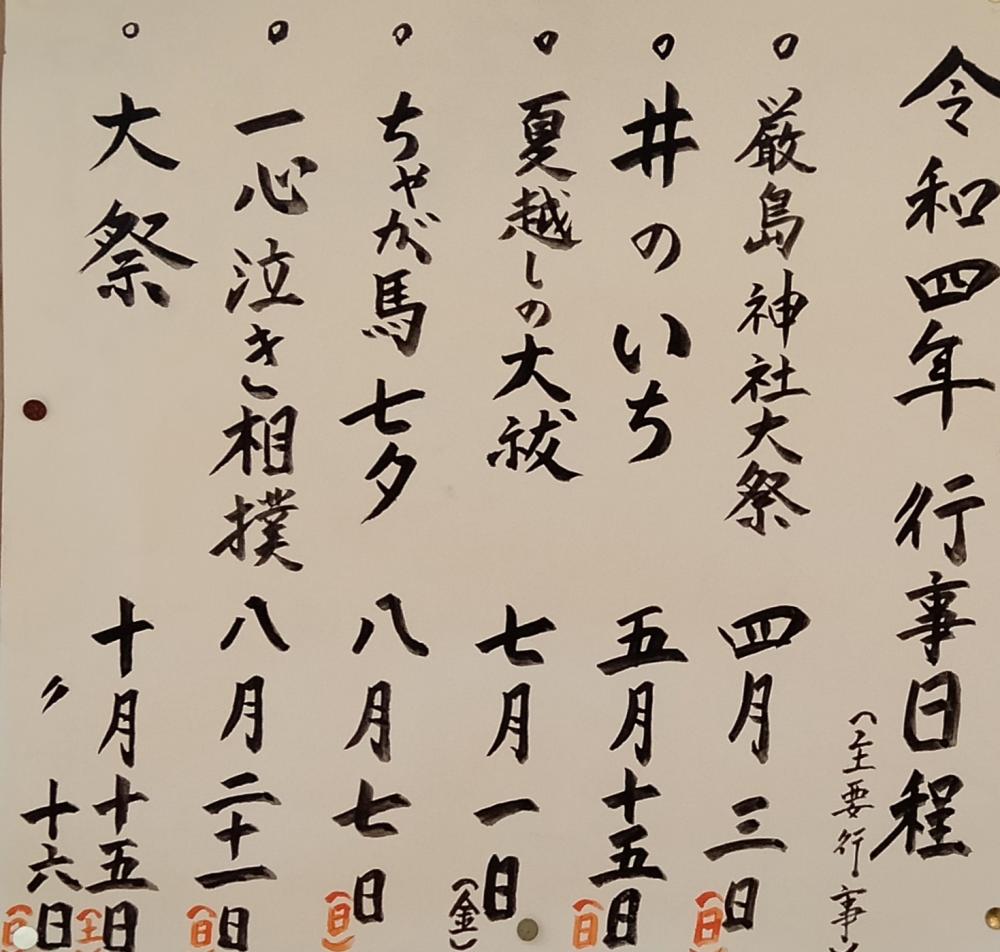 令和四年 行事日程
(主要行事)
○ 厳島神社大祭 四月三日(日)
○ 井のいち 五月十五日(日)
○ 夏越しの大祓 七月一日(金)
○ ちゃが馬七夕 八月七日(日)
○ 一心泣き相撲 八月二十一日(日)
○ 大祭 十月十五日(土)
〃 十六日(日)